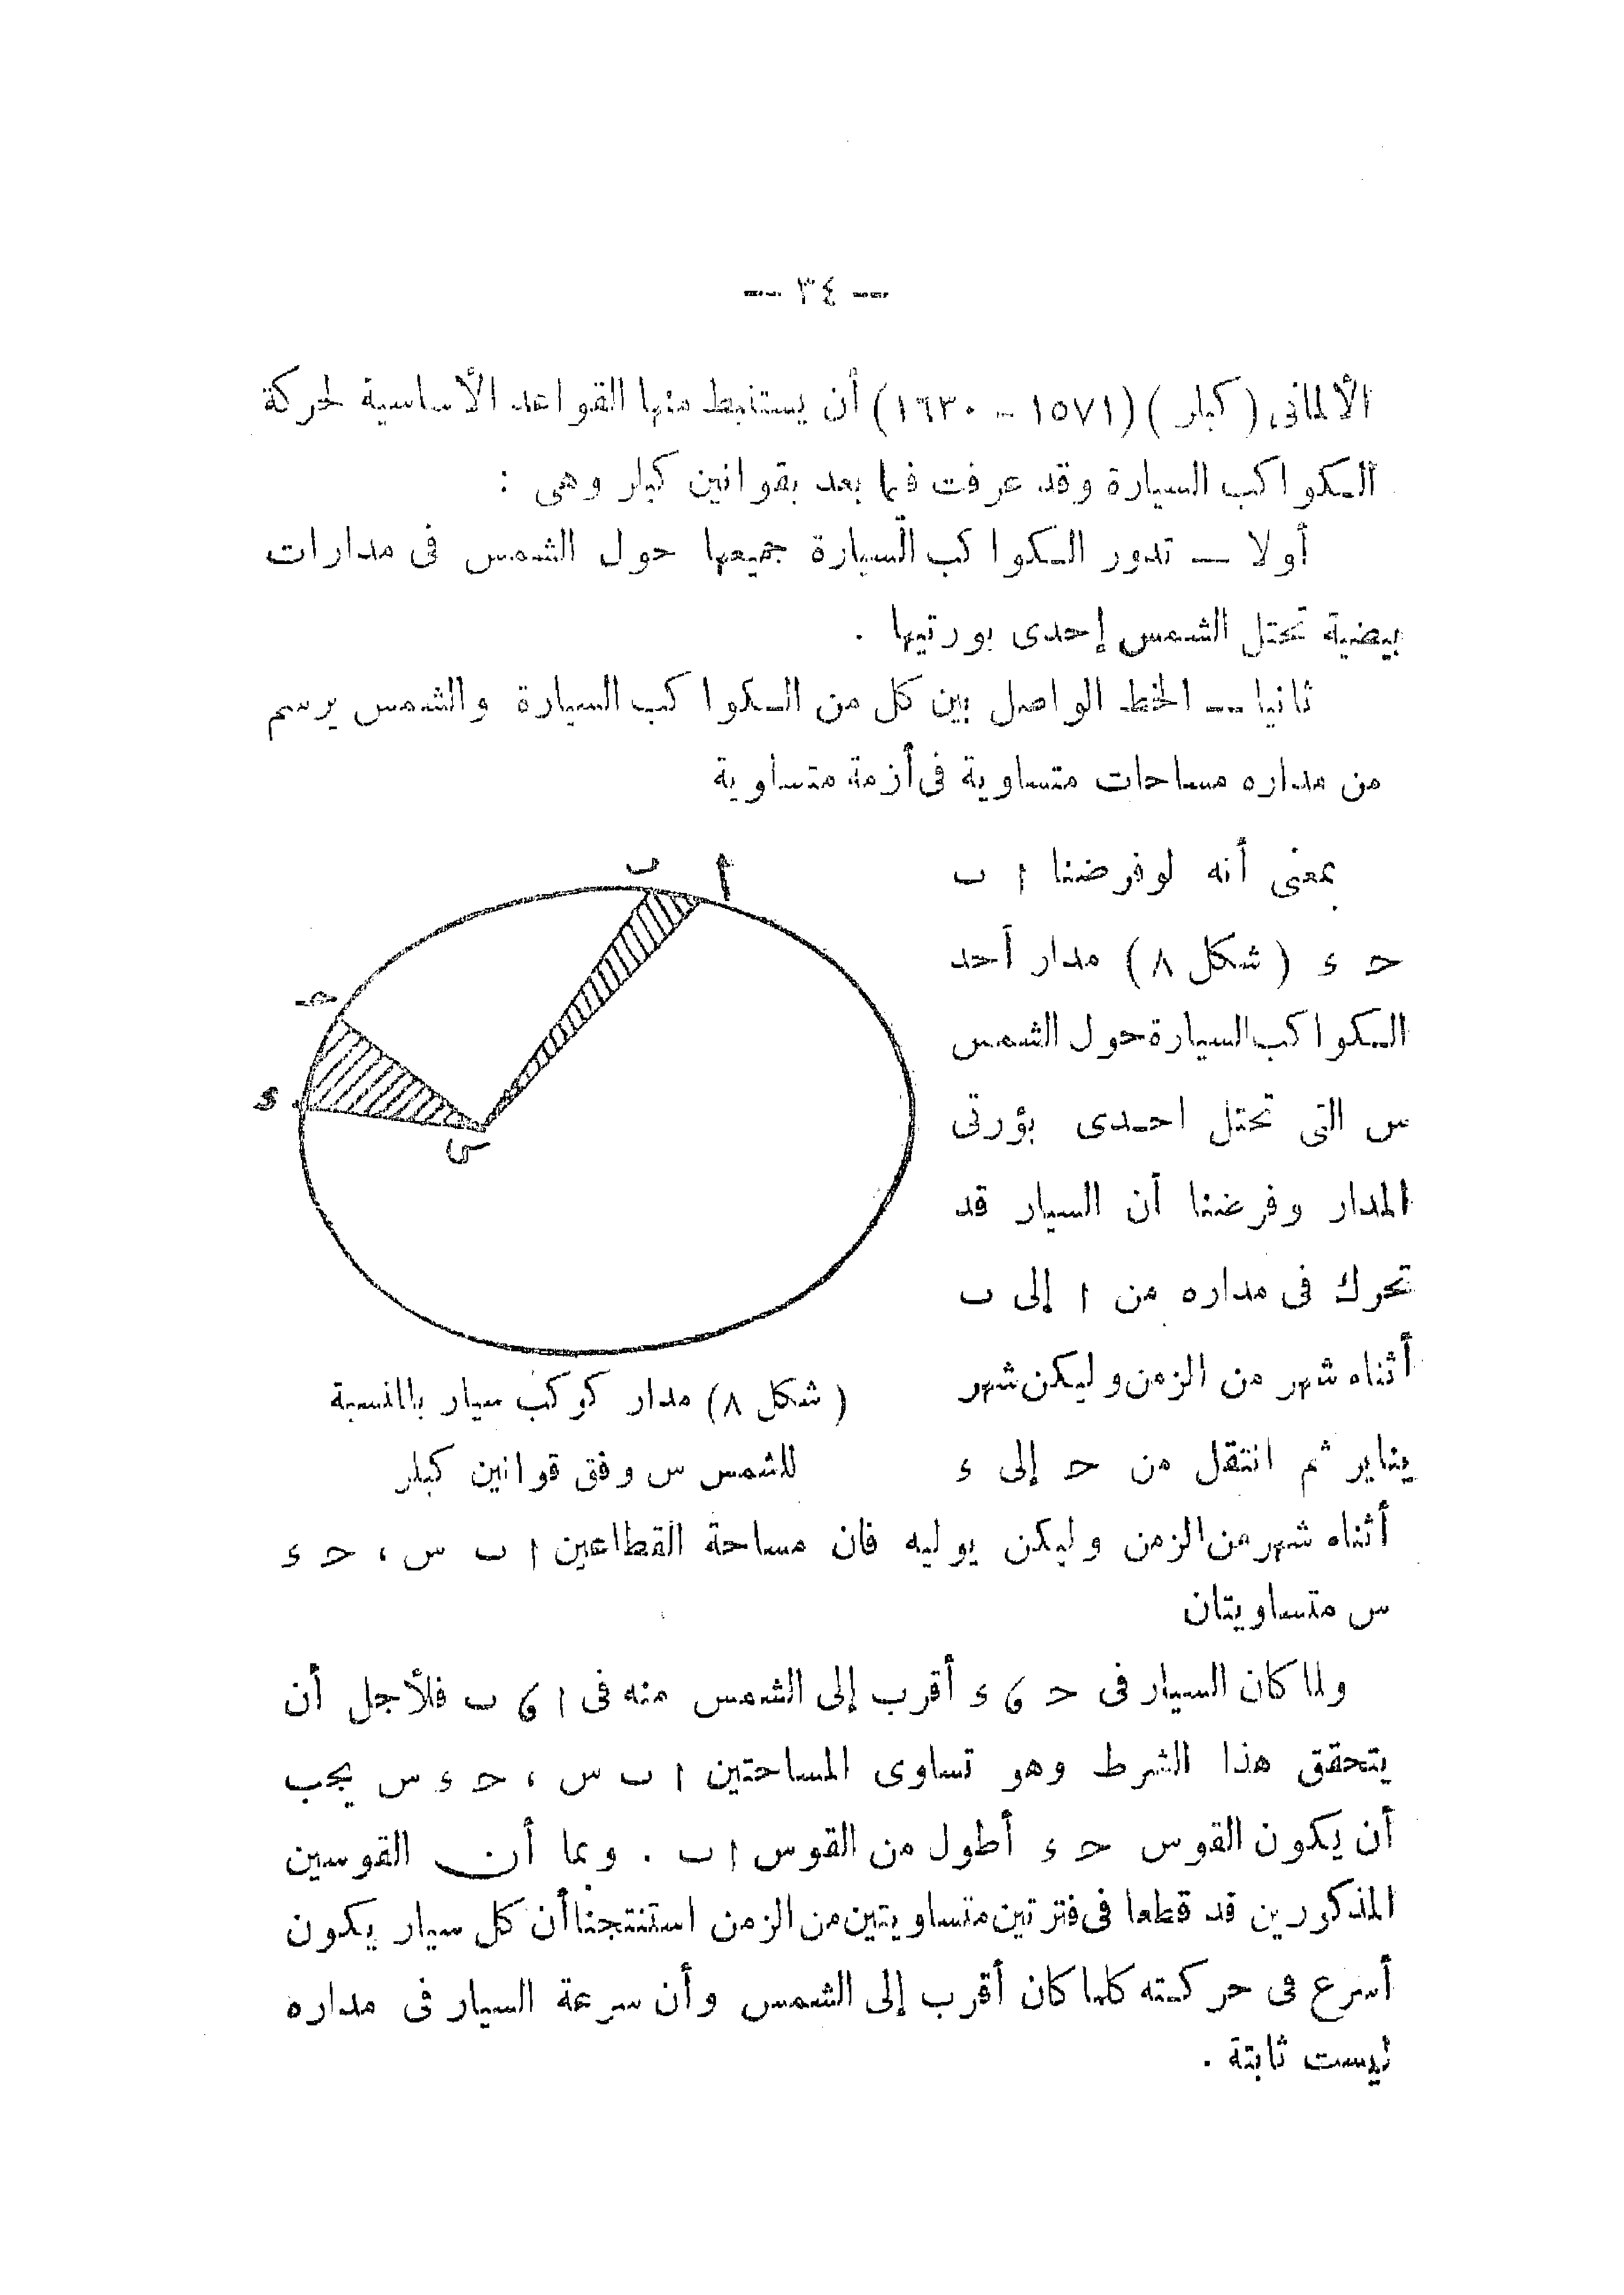 — ٣٤ —
الألمانى (كبلر) (١٥٧١ - ١٦٣٠) أن يستنبط منها القواعد الأساسية لحركة
الكواكب السيارة وقد عرفت فيما بعد بقوانين كبلر وهى :
أولا — تدور الكواكب السيارة جميعها حول الشمس فى مدارات
بيضية تحتل الشمس إحدى بورتيها .
ثانيا — الخط الواصل بين كل من الكواكب السيارة والشمس يرسم
من مداره مساحات متساوية فى أزمة متساوية
بمعنى أنه لو فرضنا ا ب
ح ء (شكل ٨) مدار أحد
الكواكب السيارة حول الشمس
س التى تحتل احدى بؤرتى
المدار وفرضنا أن السيار قد
تحرك فى مداره من ا إلى ب
أثناء شهر من الزمن وليكن شهر
يناير ثم انتقل من ح إلى ء
ب
ا
ح
ء
س
(شكل ٨) مدار كوكب سيار بالنسبة
للشمس س وفق قوانين كبلر
أثناء شهر من الزمن وليكن يوليه فان مساحة القطاعين ا ب س ، ح ء
س متساويتان
ولما كان السيار فى ح ، ء أقرب إلى الشمس منه فى ا ، ب فلأجل أن
يتحقق هذا الشرط وهو تساوى المساحتين ا ب س ، ح ء س يجب
أن يكون القوس ح ء أطول من القوس ا ب . وبما أن القوسين
المذكورين قد قطعا فى فترتين متساويتين من الزمن استنتجنا أن كل سيار يكون
أسرع فى حركته كلما كان أقرب إلى الشمس وأن سرعة السيار فى مداره
ليست ثابتة .